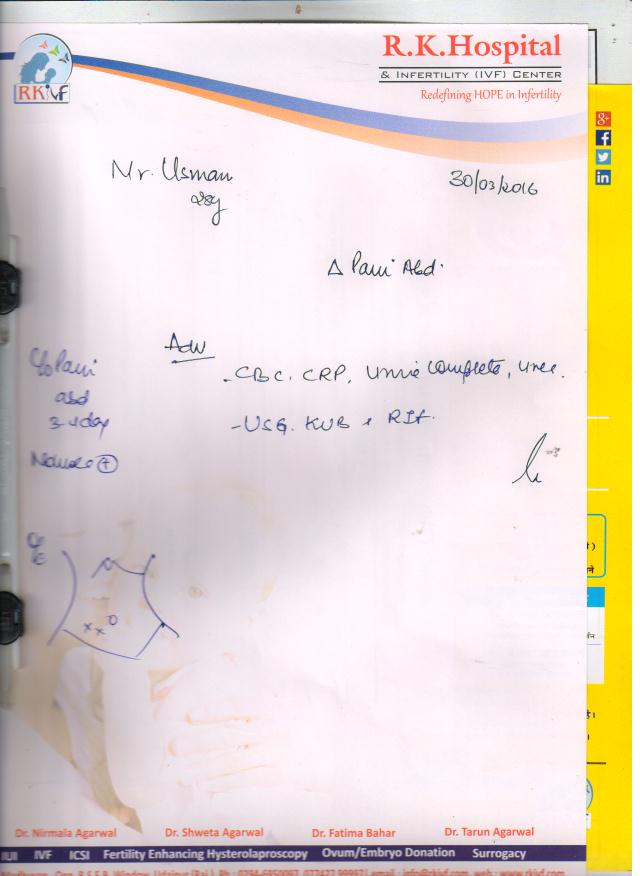 R.K.Hospital
& INFERTILITY (IVF) CENTER
Redefining HOPE in Infertility
RKIVF
Mr. Usman
30/03/2016
28y
Δ Pain Abd.
Adv
- CBC. CRP, Urine Complete, Urea.
- USG. KUB + RIF.
C/o Pain
abd
3-4 day
Nausea (+)
O/E
Dr. Nirmala Agarwal Dr. Shweta Agarwal Dr. Fatima Bahar Dr. Tarun Agarwal
IUI IVF ICSI Fertility Enhancing Hysterolaproscopy Ovum/Embryo Donation Surrogacy